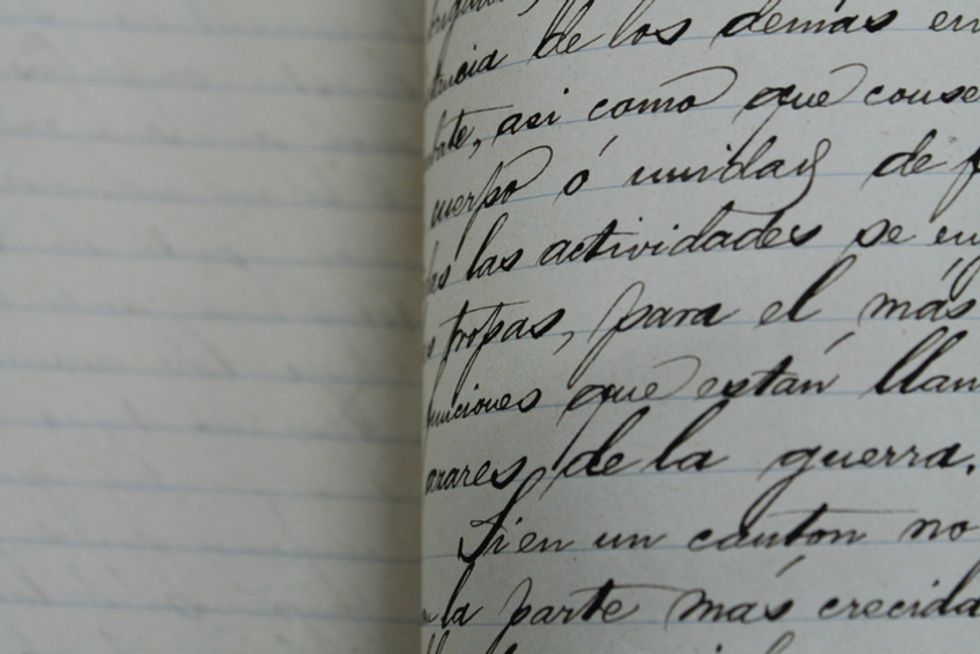 de los demás en
así como que conse
cuerpo ó unidad de f
las actividades se en
tropas, para el más
que están llam
de la guerra.
Si en un canton no
la parte más crecida